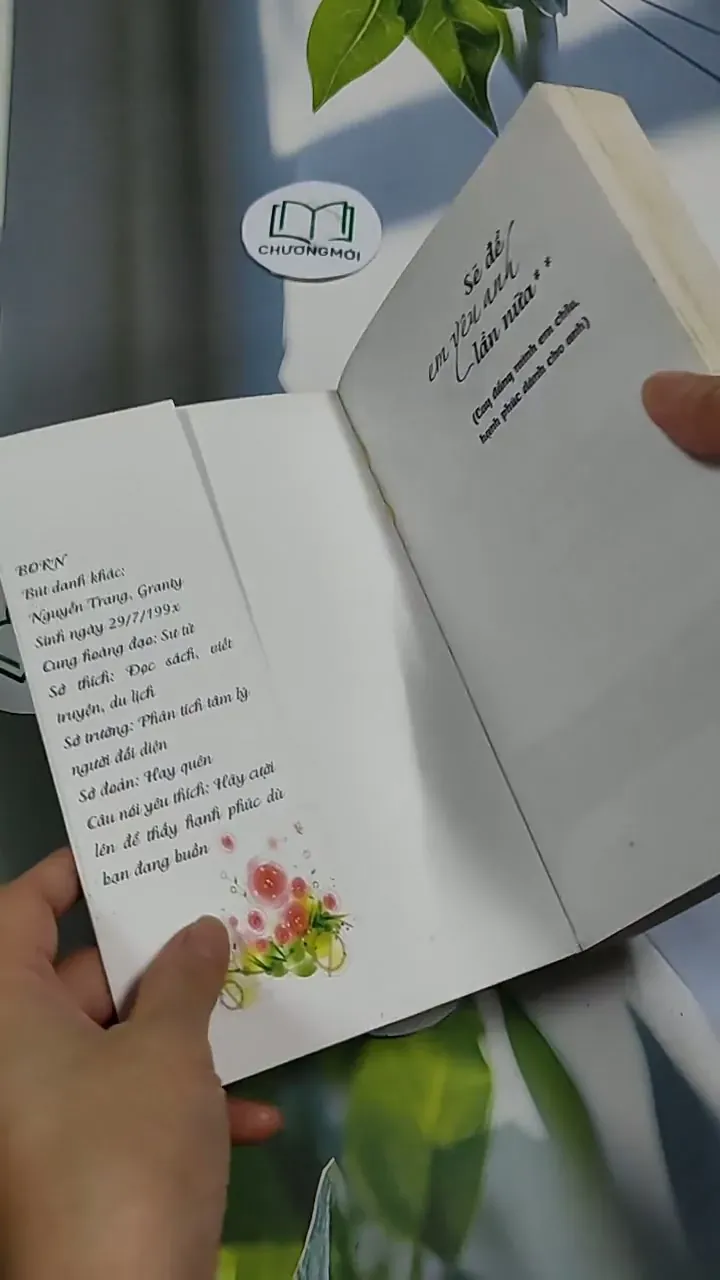 CHƯƠNGMỚI
Sẽ để
em yêu anh
lần nữa**
(Cay đắng mình em chịu,
hạnh phúc dành cho anh)
BORN
Bút danh khác:
Nguyễn Trang, Granty
Sinh ngày 29/7/199x
Cung hoàng đạo: Sư tử
Sở thích: Đọc sách, viết
truyện, du lịch
Sở trường: Phân tích tâm lý
người đối diện
Sở đoản: Hay quên
Câu nói yêu thích: Hãy cười
lên để thấy hạnh phúc dù
bạn đang buồn